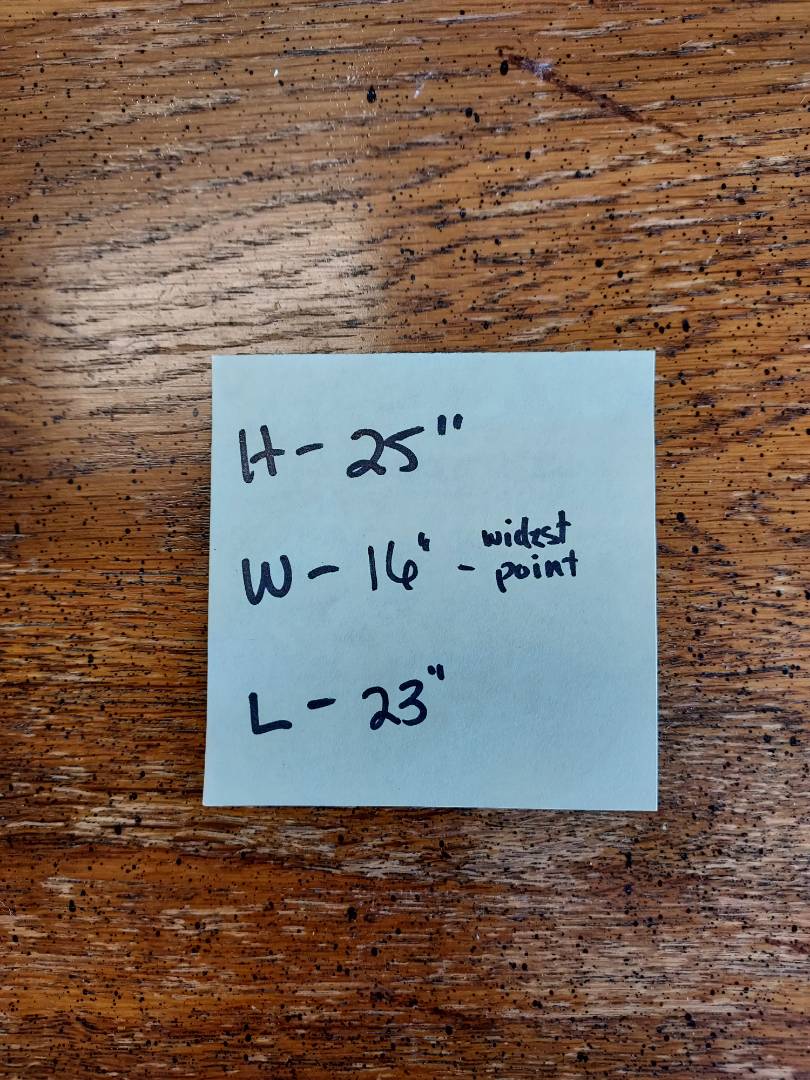 H - 25"
W - 16" - widest point
L - 23"